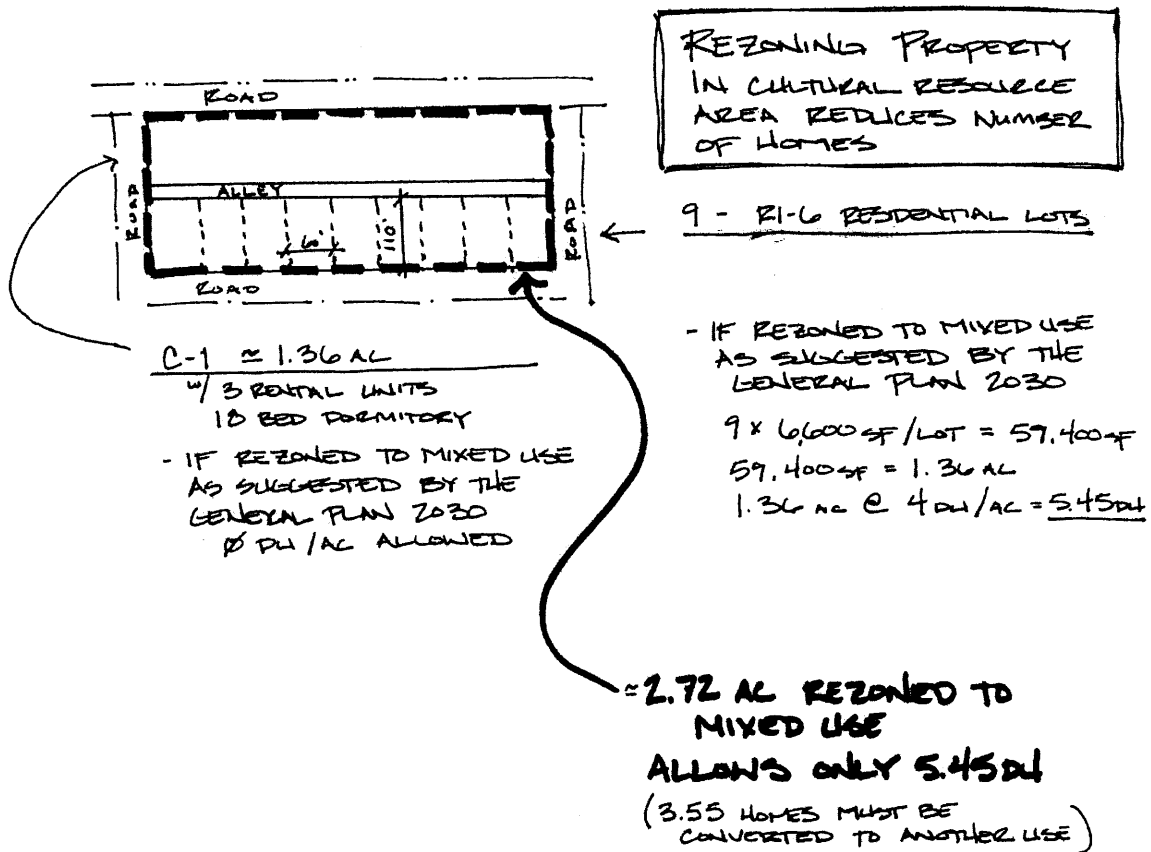 REZONING PROPERTY
IN CULTURAL RESOURCE
AREA REDUCES NUMBER
OF HOMES
ROAD
ROAD
ALLEY
60'
110'
ROAD
ROAD
9 - R1-6 RESIDENTIAL LOTS
C-1 ≃ 1.36 AC
w/ 3 RENTAL UNITS
18 BED DORMITORY
- IF REZONED TO MIXED USE
AS SUGGESTED BY THE
GENERAL PLAN 2030
Ø DU/AC ALLOWED
- IF REZONED TO MIXED USE
AS SUGGESTED BY THE
GENERAL PLAN 2030
9 x 6,600 SF/LOT = 59,400 SF
59,400 SF = 1.36 AC
1.36 AC @ 4 DU/AC = 5.45 DU
≃2.72 AC REZONED TO
MIXED USE
ALLOWS ONLY 5.45 DU
(3.55 HOMES MUST BE
CONVERTED TO ANOTHER USE)